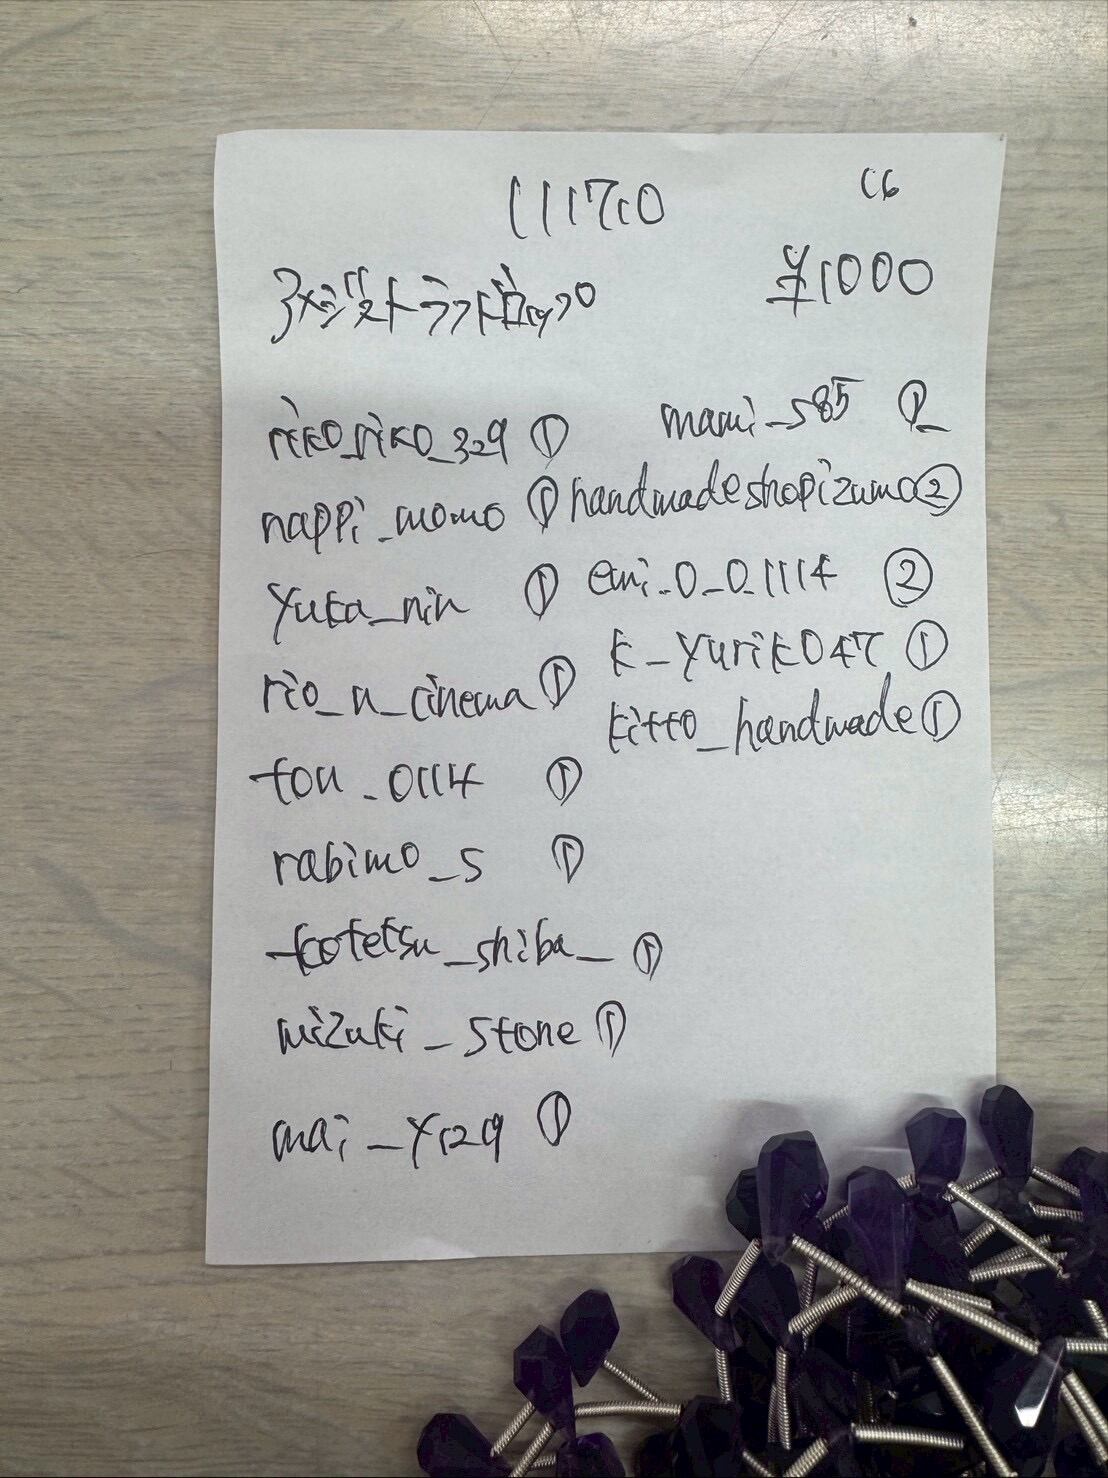 111710
C6
アメジストラフドロップ
¥1000
riko_riko_329 ①
nappi_momo ①
yuka_nin ①
rio_n_cinema ①
tou_0114 ①
rabimo_s ①
kotetsu_shiba_ ①
mizuki_stone ①
mai_y129 ①
mami_s85 ①
handmadeshopizumo ②
emi_0_0_1114 ②
k_yuriko47 ①
kitto_handmade ①